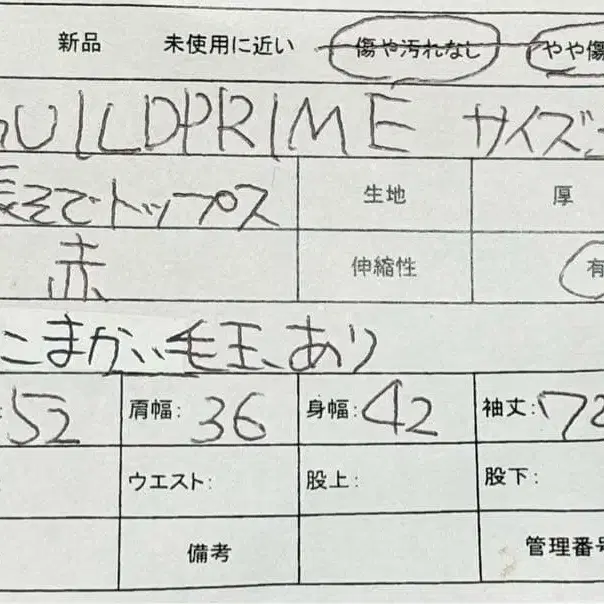 新品 未使用に近い 傷や汚れなし やや傷
GUILDPRIME サイズ:
長そでトップス 生地 厚
赤 伸縮性 有
こまかい毛玉、あり
52 肩幅: 36 身幅: 42 袖丈: 72
ウエスト: 股上: 股下:
備考 管理番号